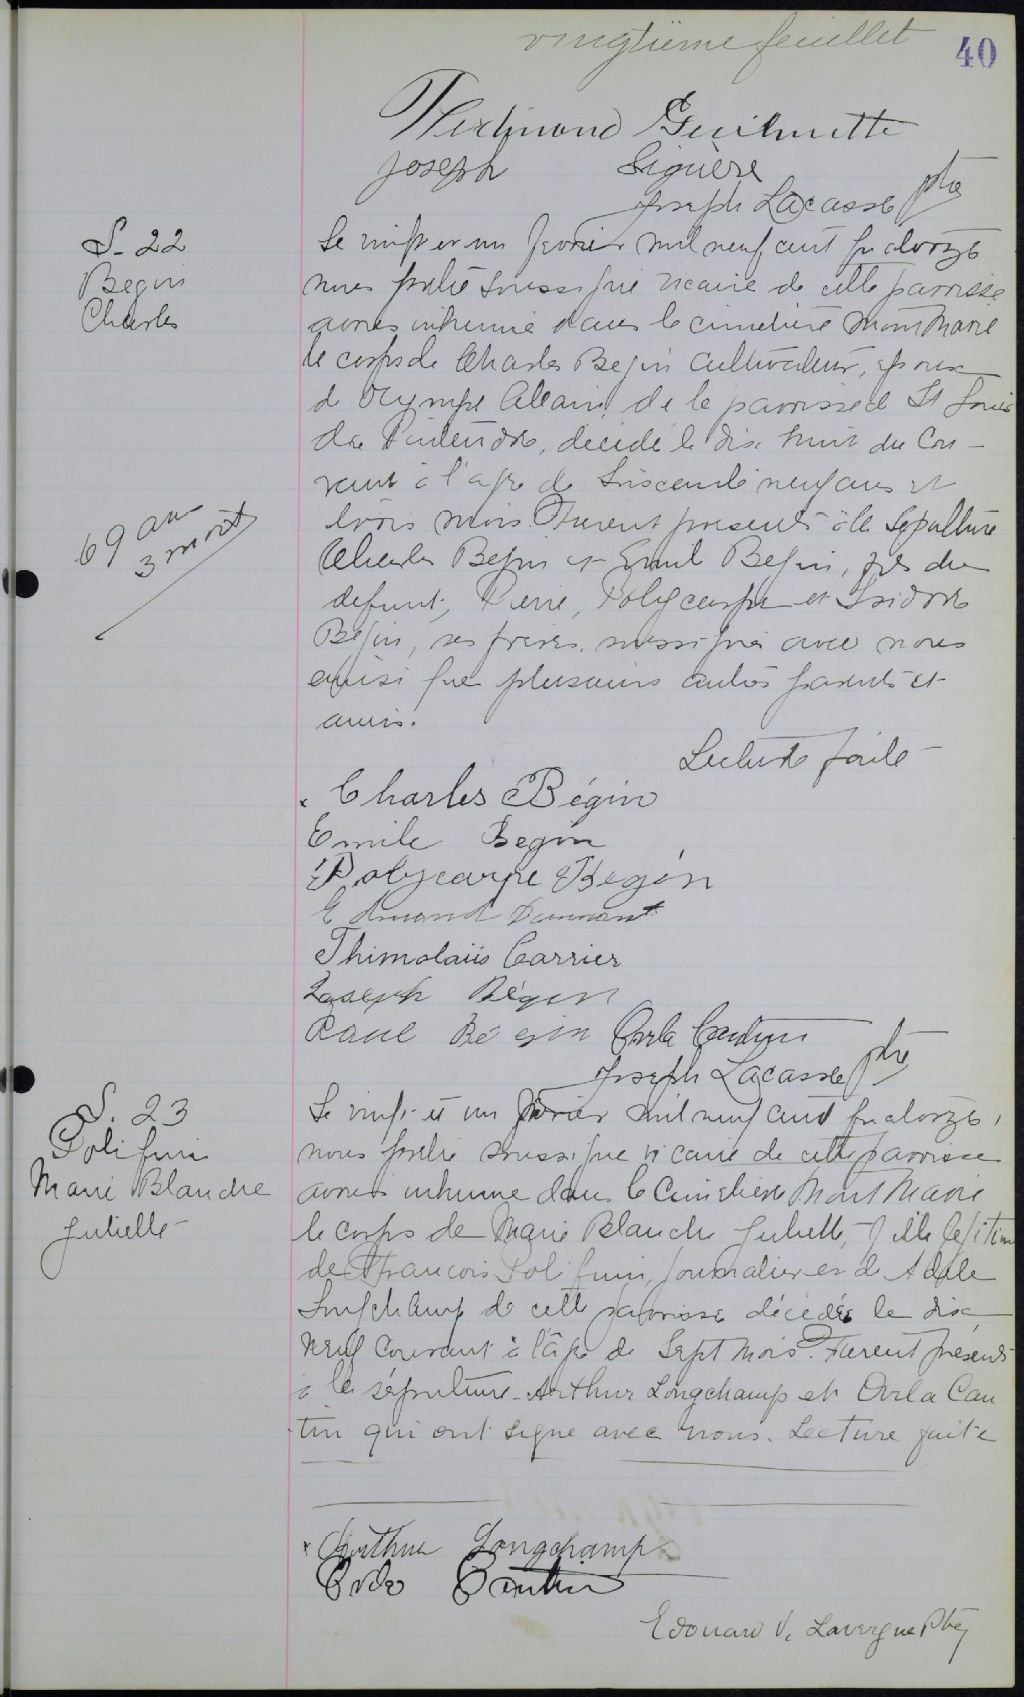 vingtième feuillet
40
Ferdinand Guilmette
Joseph Giguère
Joseph Lacasse ptre
S. 22
Begin
Charles
69 ans
3 mois
Le vingt et un fevrier mil neuf cent quatorze
nous prêtre soussigné vicaire de cette paroisse
avons inhumé dans le cimetière Mont Marie
le corps de Charles Begin cultivateur, époux
d'Olympe Allain, de la paroisse de St Louis
de Pintendre, décédé le dix huit du cou-
rant à l'age de soixante neuf ans et
trois mois. Furent presents à la sépulture
Charles Begin et Emile Begin, fils du
defunt, Pierre, Polycarpe et Isidore
Begin, ses frères, soussignés avec nous
ainsi que plusieurs autres parents et
amis.
Lecture faite
x Charles Bégin
Emile Begin
Polycarpe Bégin
Edmond
Thimolaüs Carrier
Joseph Bégin
Raoul Bégin Ovila Cantin
Joseph Lacasse ptre
S. 23
Poliquin
Marie Blanche
Juliette
Le vingt et un février mil neuf cent quatorze,
nous prêtre soussigné vicaire de cette paroisse
avons inhumé dans le Cimetière Mont Marie
le corps de Marie Blanche Juliette, fille légitime
de François Poliquin, journalier et de Adèle
Longchamp de cette paroisse décédée le dix
neuf courant à l'âge de sept mois. Furent présents
à la sépulture Arthur Longchamp et Ovila Can
tin qui ont signé avec nous. Lecture faite
x Arthur Longchamp
Ovila Cantin
Edouard V. Lavergne Ptre